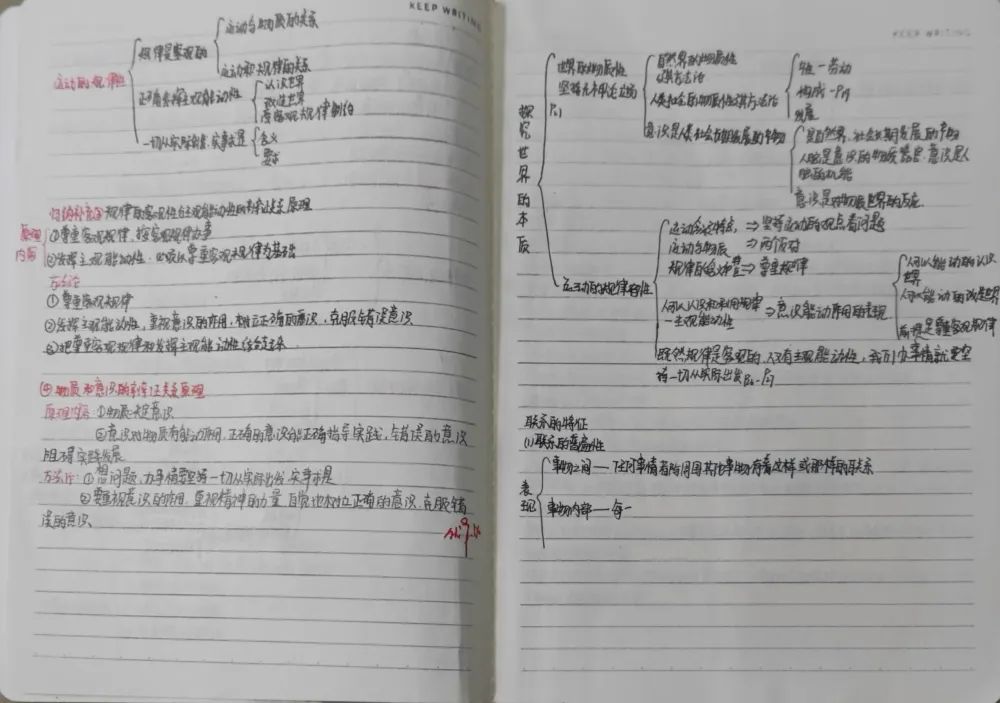 KEEP WRITING
运动的规律性
规律是客观的
运动与物质的关系
运动和规律的关系
正确发挥主观能动性
认识世界
改造世界
客观规律制约
一切从实际出发,实事求是
含义
要求
归纳补充② 规律的客观性和主观能动性的辩证关系原理
原理内容
①尊重客观规律,按客观规律办事
②发挥主观能动性,必须以尊重客观规律为基础
方法论
①尊重客观规律
②发挥主观能动性,重视意识的作用,树立正确的意识,克服错误意识
③把尊重客观规律和发挥主观能动性结合起来
④物质和意识的辩证关系原理
原理内容:①物质决定意识
②意识对物质有能动作用,正确的意识能正确指导实践,错误的意识
阻碍实践发展
方法论:①想问题、办事情要一切从实际出发,实事求是
②要重视意识的作用,重视精神的力量,自觉地树立正确的意识,克服错
误的意识
KEEP WRITING
探究世界的本质
世界的物质性
自然界的物质性
及其方法论
人类社会的物质性及其方法论
劳动
构成
发展
意识是人类社会物质发展的产物
是自然界、社会长期发展的产物
人脑是意识的物质器官,意识是人
脑的机能
意识是对物质世界的反应
运动的规律性
⇒坚持运动的观点看问题
运动与物质 ⇒两反对
⇒尊重规律
人可以认识和利用规律
—主观能动性 ⇒意识能动作用的表现
人可以能动的认识
世界
人可以能动的改造世界
前提是尊重客观规律
既然规律是客观的,人有主观能动性,我们办事情就要坚
持一切从实际出发
联系的特征
(1)联系的普遍性
表现
事物之间—任何事情都与周围其他事物有着这样或那样的联系
事物内部—每一